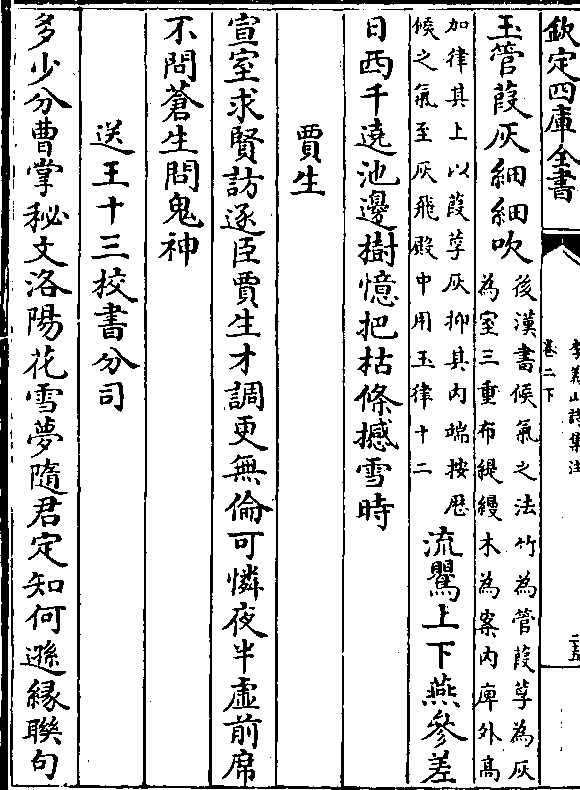 欽定四庫全書
李義山詩集注
卷二下
玉管葭灰細細吹
後漢書候氣之法竹為管葭莩為灰
為室三重布緹縵木為案内庳外高
加律其上以葭莩灰抑其内端按歴
候之氣至灰飛殿中用玉律十二
流鶯上下燕參差
日西千遶池邊樹憶把枯條撼雪時
賈生
宣室求賢訪逐臣賈生才調更無倫可憐夜半虛前席
不問蒼生問鬼神
送王十三校書分司
多少分曹掌秘文洛陽花雪夢隨君定知何遜緣聯句